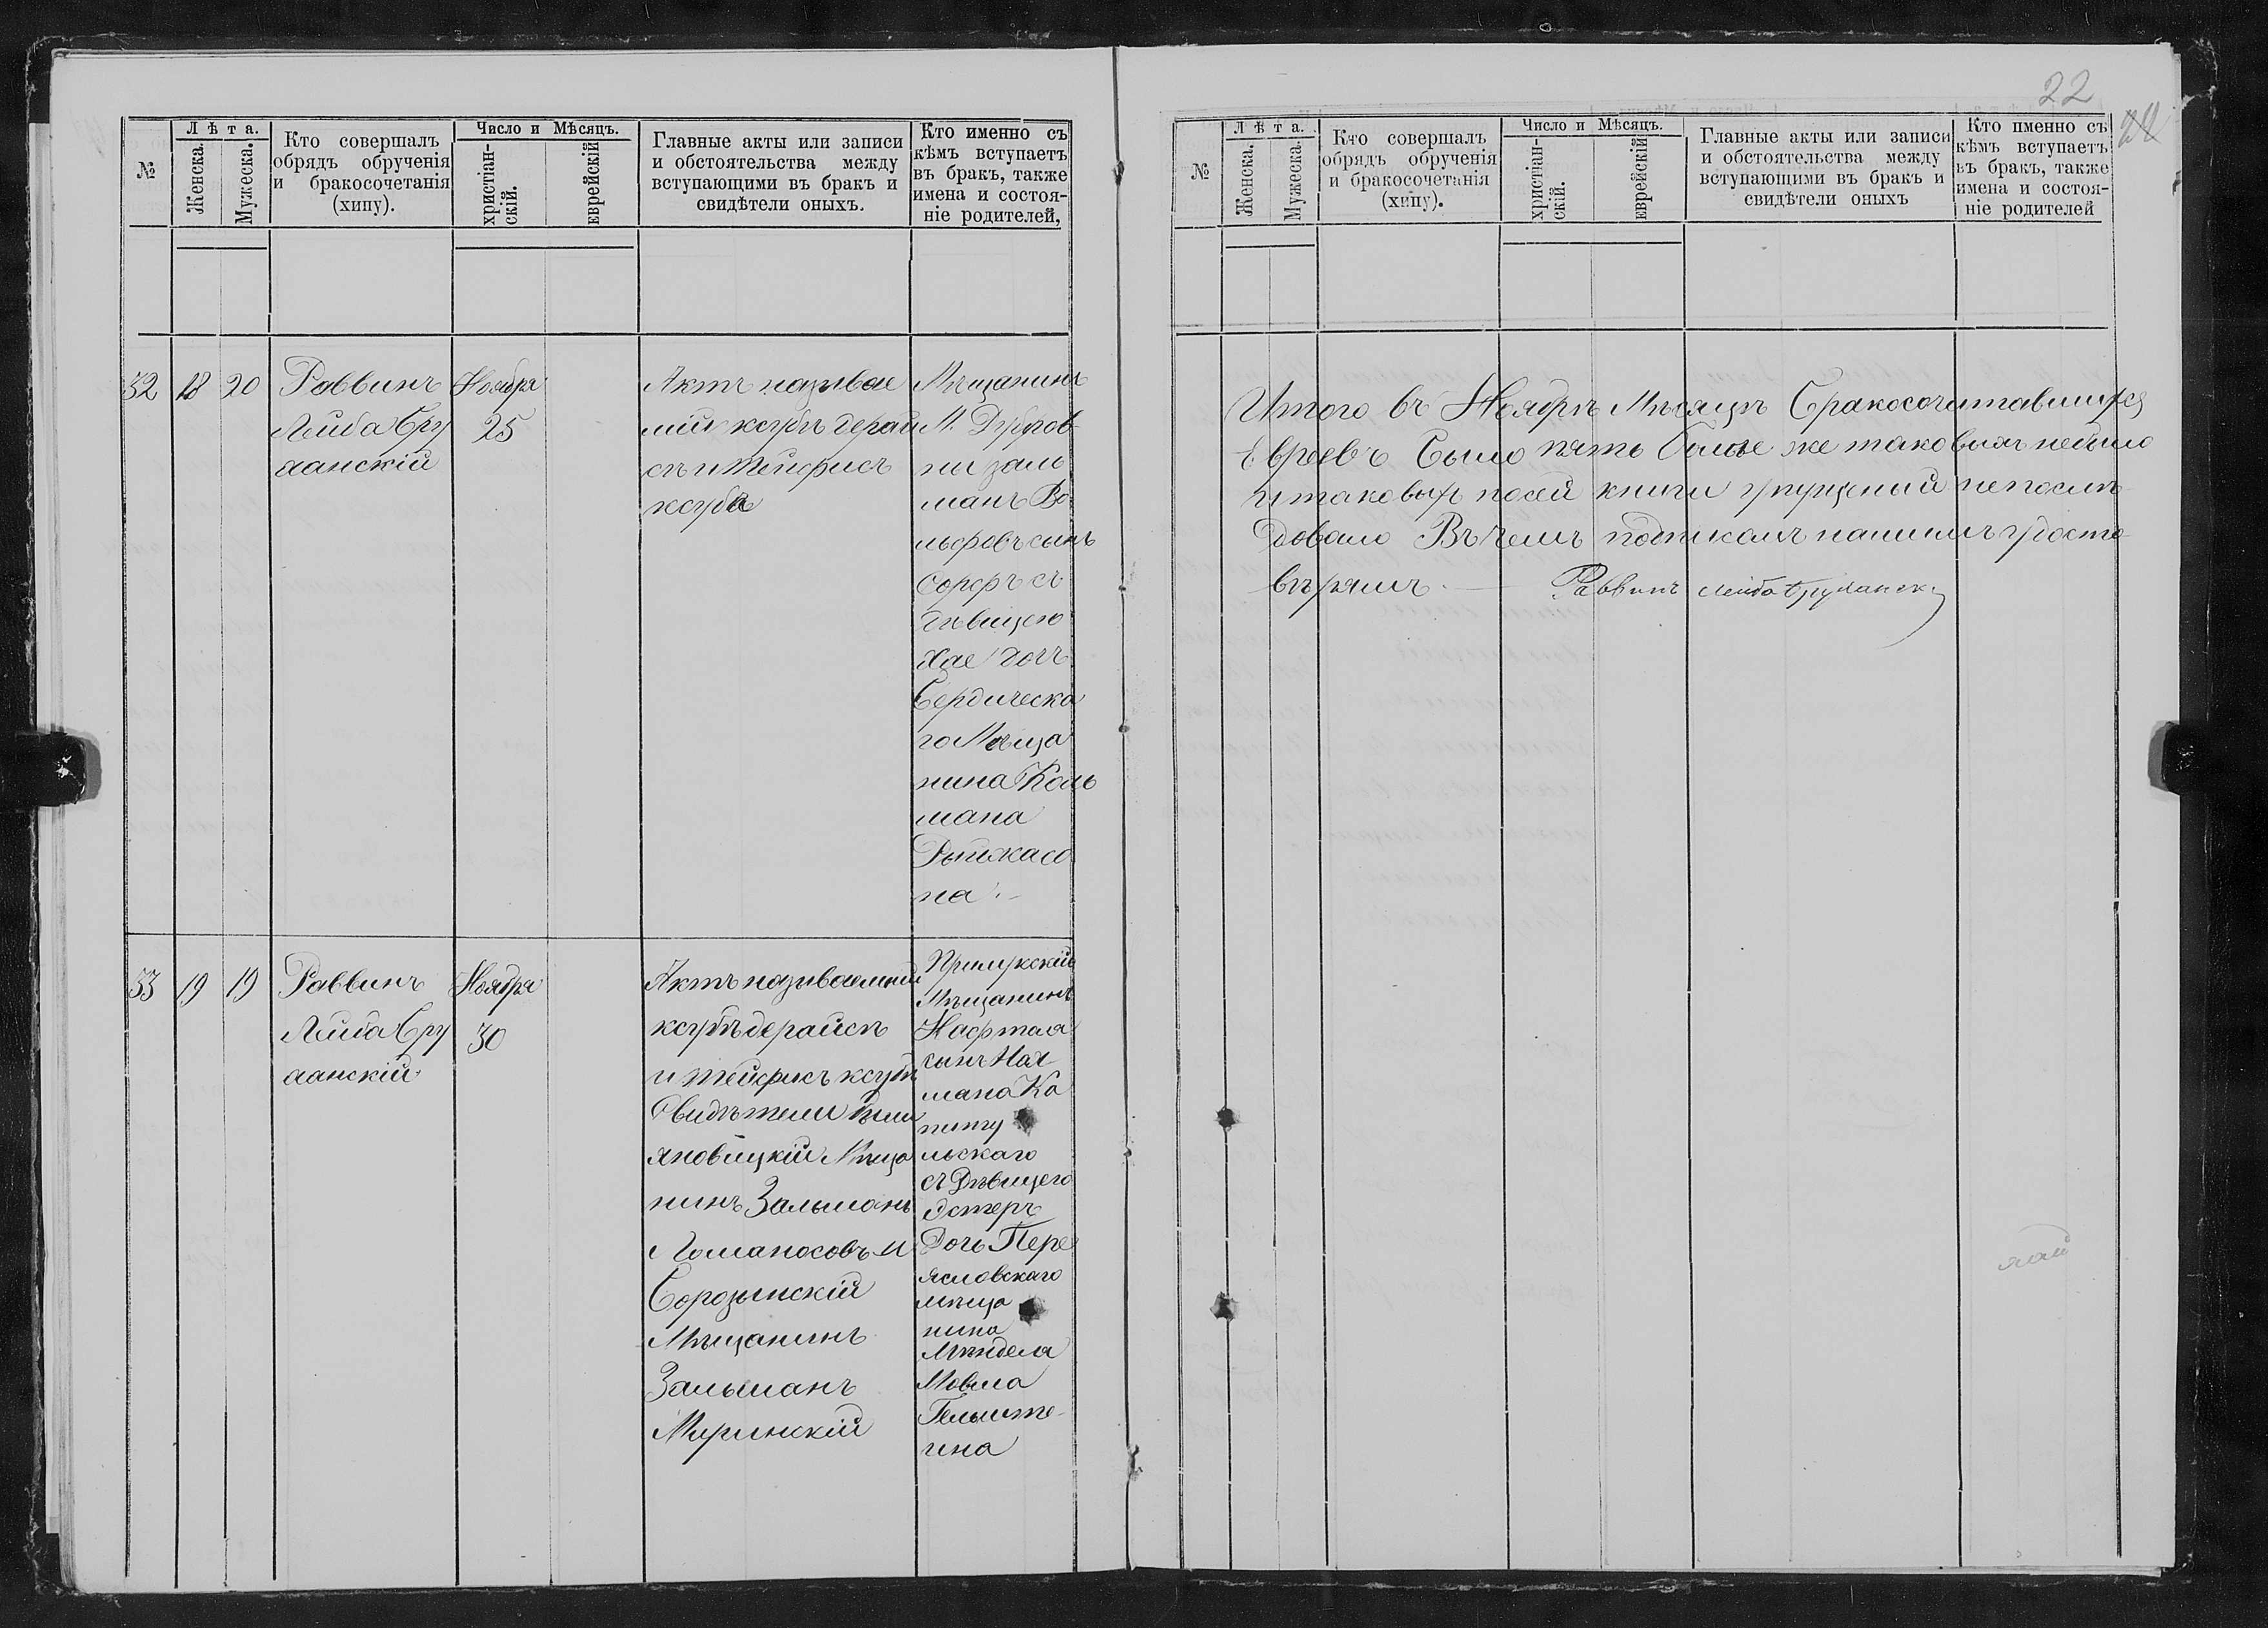 22
№
Лѣта.
Женска.
Мужеска.
Кто совершалъ
обрядъ обрученія
и бракосочетанія
(хипу).
Число и Мѣсяцъ.
христіан-
скій.
еврейскій
Главные акты или записи
и обстоятельства между
вступающими въ бракъ и
свидѣтели оныхъ.
Кто именно съ
кѣмъ вступаетъ
въ бракъ, также
имена и состоя-
ніе родителей,
32
18
20
Раввинъ
Лейба Бру
Ноября
25
Актъ називае
мій ксубъ дерай
ксуба
Мѣщанинъ
М. Дубров
ни Заль
манъ Во
льфовъ сынъ
Сорфъ съ
дѣвицею
Хае дочъ
Бердическа
го Мѣща
нина Каль
мана
на
33
19
19
Раввинъ
Лейба Бру
Ноября
30
Актъ називаемый
ксубъ дерайсъ
и тейфисъ ксубъ
Свидѣтели были
яновицкій Мѣща
нинъ Зальманъ
Ломаносовъ и
Борозинскій
Мѣщанинъ
Зальманъ
Миринскій
Прилукскій
Мѣщанинъ
Нафтала
сынъ Нах
мана Ка
пшту
льскаго
съ Дѣвицего
Эстеръ
Дочь Пере
ясловскаго
мѣща
нина
Мѣндела
Мовша
Гельште-
ина
№
Лѣта.
Женска.
Мужеска.
Кто совершалъ
обрядъ обрученія
и бракосочетанія
(хипу).
Число и Мѣсяцъ.
христіан-
скій.
еврейскій
Главные акты или записи
и обстоятельства между
вступающими въ бракъ и
свидѣтели оныхъ
Кто именно съ
кѣмъ вступаетъ
въ бракъ, также
имена и состоя-
ніе родителей
Итого въ Ноябрѣ Мѣсяцѣ Бракосочитавшихся
Евреевъ Было пять Более же таковыхъ небыло
и таковыхъ посей книги упущеній непослѣ-
довало Въ чемъ подписомъ нашимъ удосто-
вѣряемъ — Раввинъ Лейба